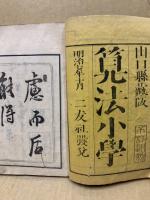 山口縣藏版
筭法小學
明治二年十月 二友社發兌
慮而后
能得